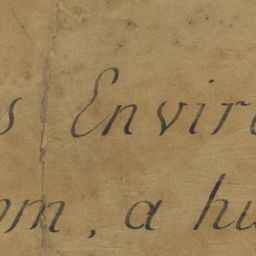 s Envir
om, a hu